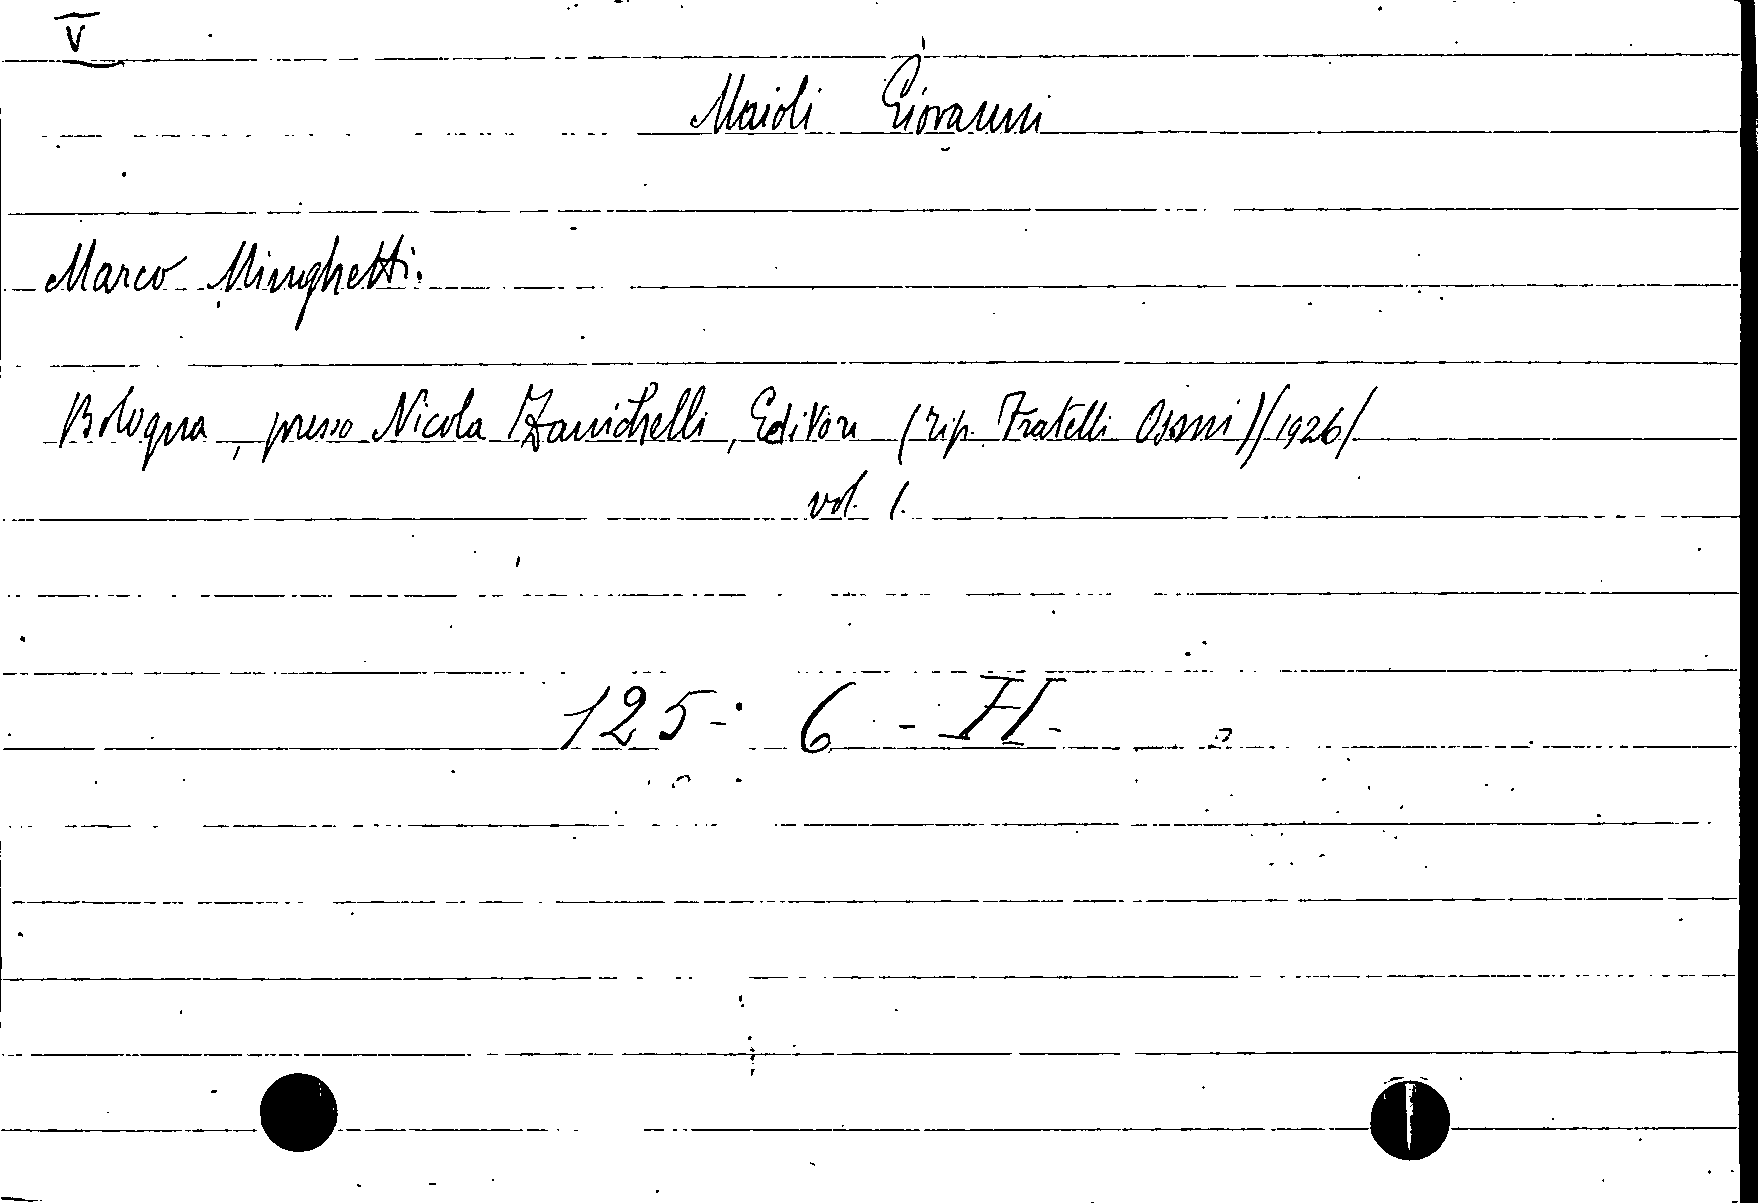 V
Maioli Giovanni
Marco Minghetti.
Bologna, presso Nicola Zanichelli, Editore (tip. Fratelli) /1926/
vol. 1.
125-6-H-